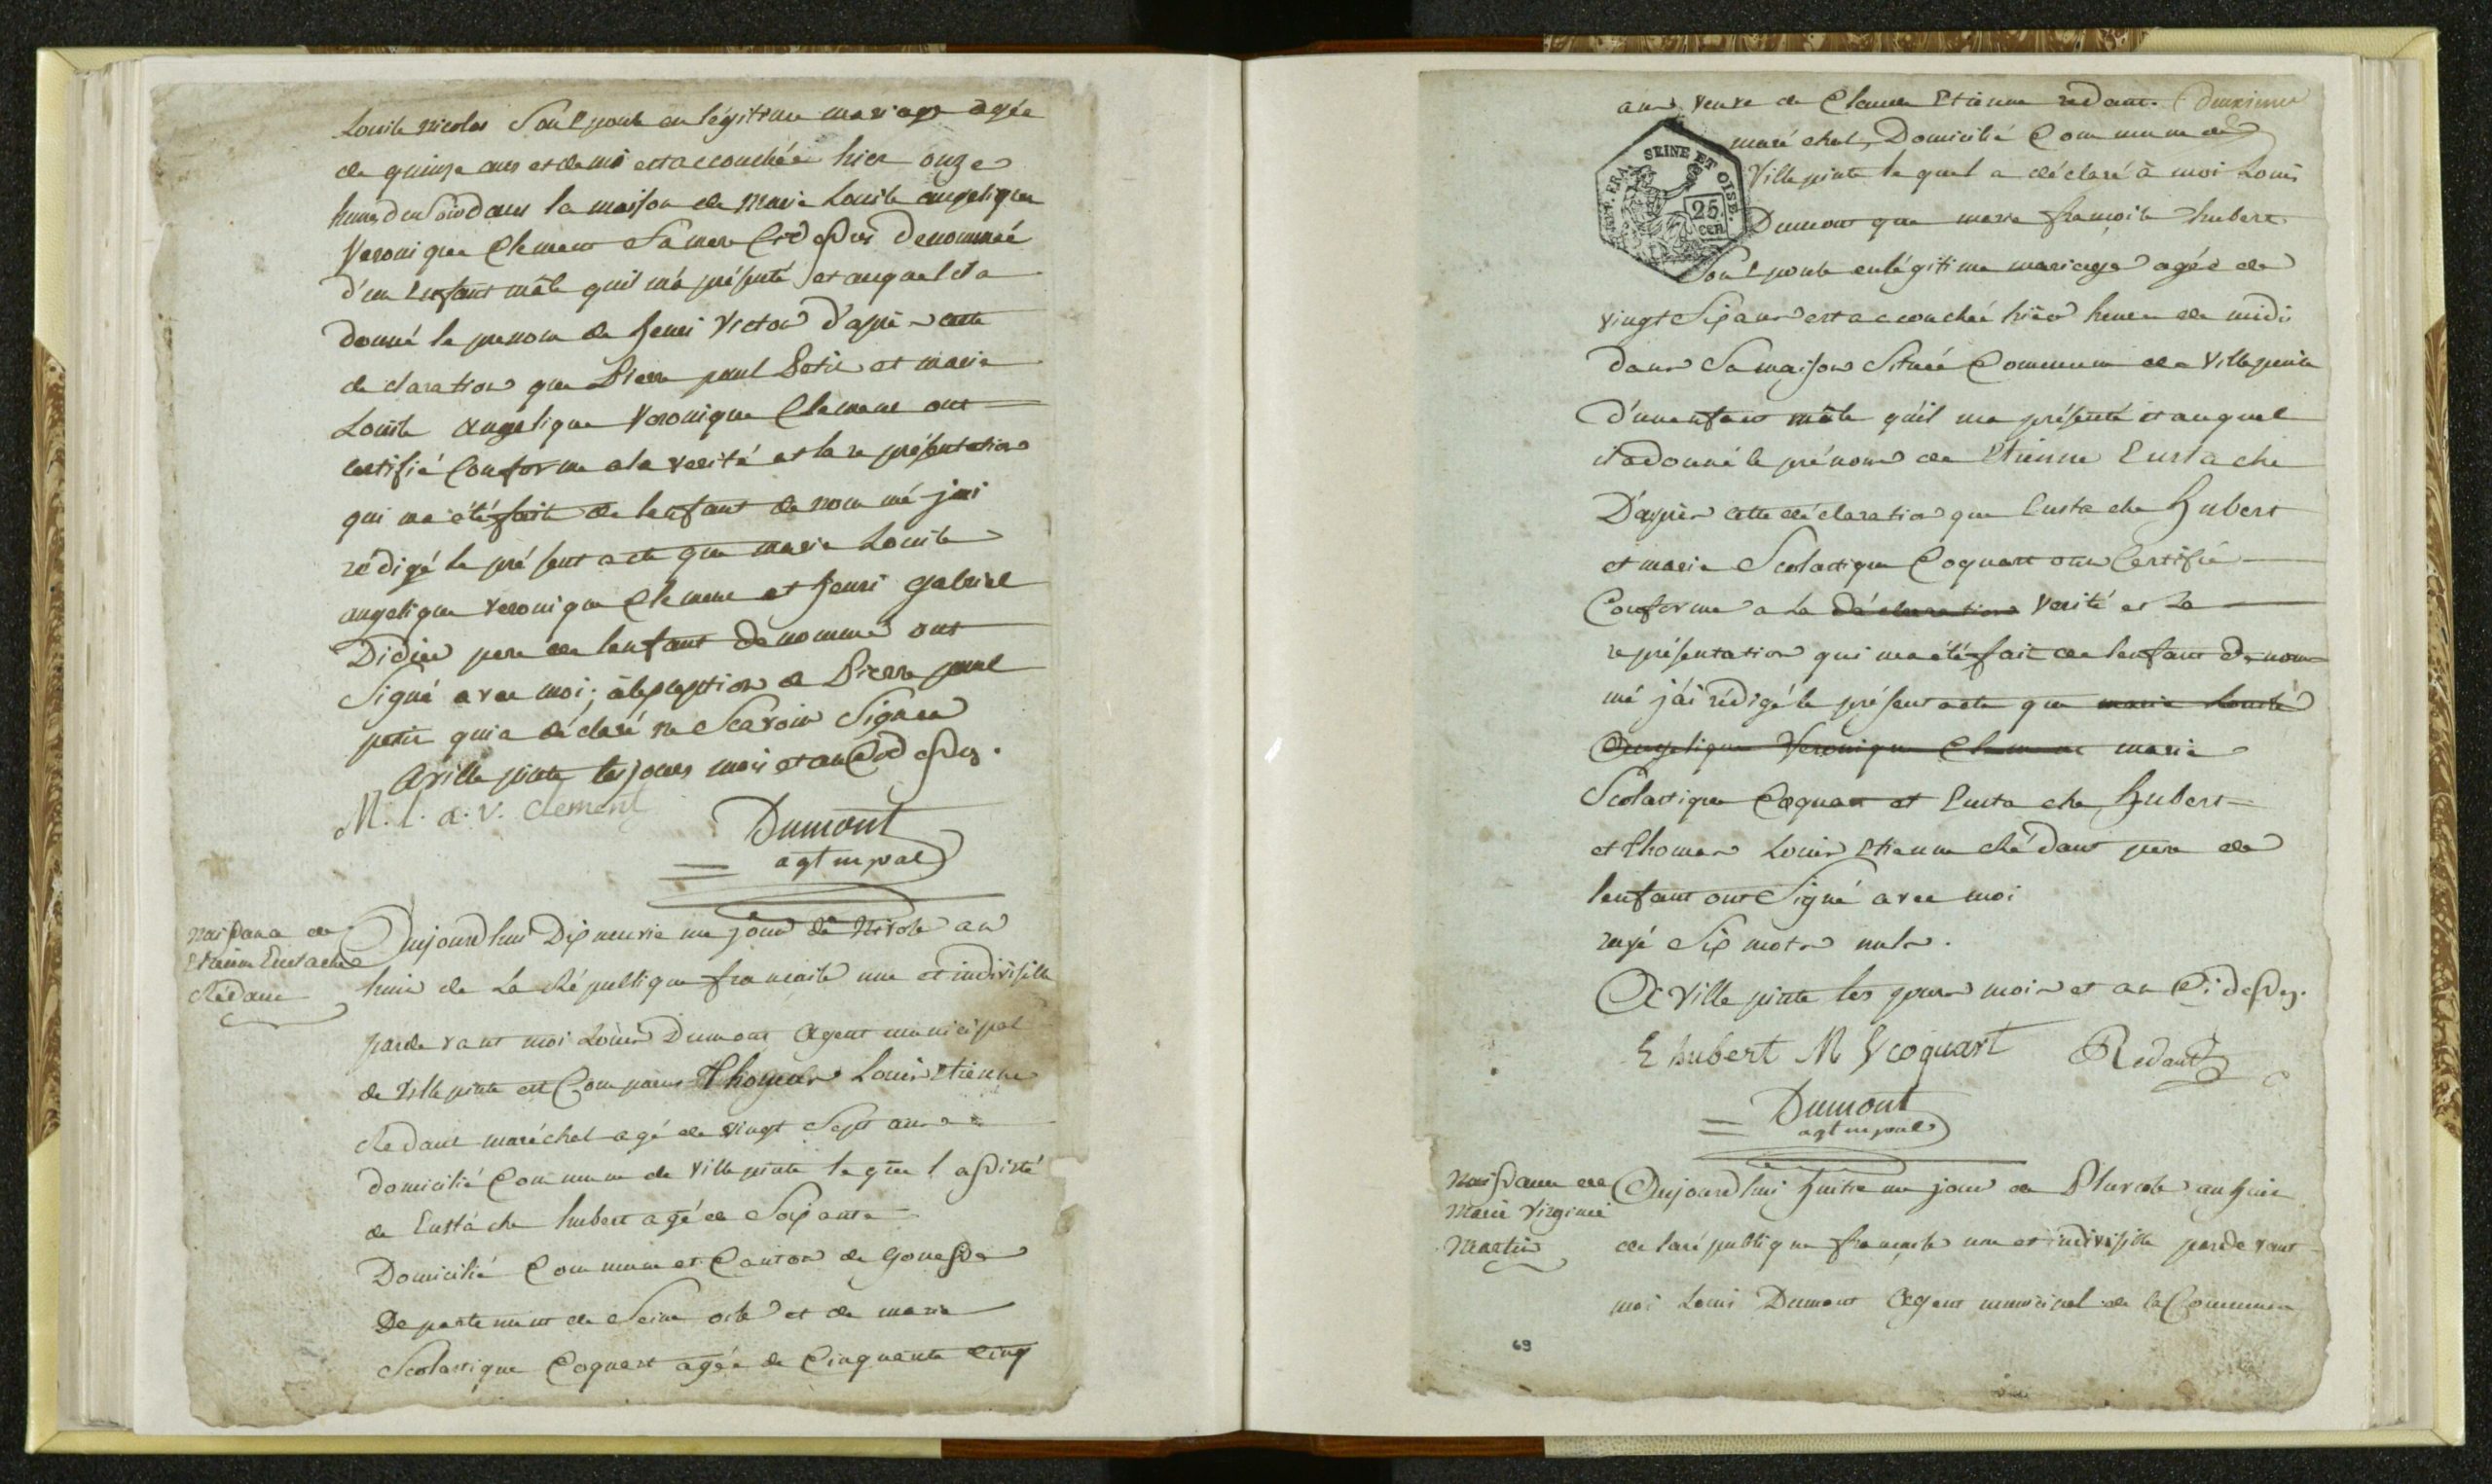 Louise nicolas Son Epouse en légitime mariage agée
de quinze ans et demi est accouchée hier onze
heures du Soir dans la maison de Marie Louise angelique
Veronique Clement Sa mere Cidessus denommée
d'un Enfant mâle quil m'a présenté et auquel il a
donné le prenom de henri Victor d'après cette
declaration que Pierre paul Petit et marie
Louise Angelique Veronique Clement ont
Certifié Conforme a la verité et la représentation
qui ma été faite de lenfant denommé j'ai
rédigé le présent acte que marie Louise
angelique veronique Clement et henri gabriel
Didier pere de lenfant denommé ont
Signé avec moi; a lexception de Pierre paul
petit qui a déclaré ne Scavoir Signer
A ville pinte les jours mois et an Cidessus.
M. l. a. v. Clement
Dumont
agt mpal
Naissance de
Etienne Eustache
Rédant
Aujourdhui Dixneuvieme jour de Nivose an
huit de La République francaise une et indivisible
pardevant moi Louis Dumont Agent municipal
de Ville pinte est Comparu Thomas Louis Etienne
Redant maréchal agé de vingt Sept ans
domicilié Commune de Ville pinte lequel assisté
de Eustache hubert agé de Soixante
Domicilié Commune et Canton de Gonesse
Departement de Seine oise et de marie
Scolastique Coquart agée de Cinquante Cinq
ans veuve de Claude Etienne redant. Deuxieme
maréchal, Domicilié Commune de
Ville pinte lequel a déclaré à moi Louis
Dumont que marie françoise hubert
Son Epouse en légitime mariage agée de
vingt Six ans est accouchée hier heure de midi
dans Sa maison Située Commune de Villepinte
d'un enfant mâle qu'il ma présenté et auquel
il a donné le prénom de Etienne Eustache
D'après cette déclaration que Eustache hubert
et marie Scolastique Coquart ont Certifié
Conforme a La déclaration Verité et La
représentation qui ma été fait de lenfant denom
mé j'ai rédigé le présent acte que marie Louise
Angelique Veronique Clement marie
Scolastique Coquart et Eustache hubert
et Thomas Louis Etienne Rédant pere de
lenfant ont Signé avec moi
rayé Six mots nuls.
A Ville pinte les jours mois et an Cidessus.
E hubert M S coquart Redant
Dumont
agt mpal
Naissance de
Marie Virginie
Martin
Aujourdhui huitieme jour de Pluviose an huit
de la république francaise une et indivisible pardevant
moi Louis Dumont Agent municipal de la Commune
SEINE ET OISE.
REP. FRA
25
CEN
69